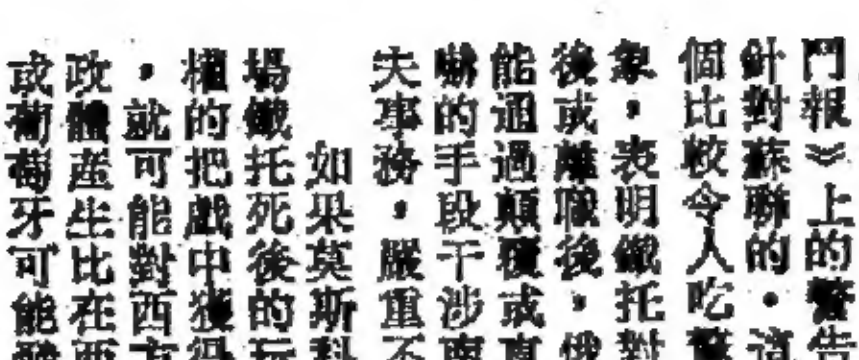 門報》上的警告
針對蘇聯的。這
個比較令人吃驚
象，表明鐵托對
後或離職後，俄
能通過顛覆或直
嚇的手段干涉南
夫事務，嚴重不
如果莫斯科
場鐵托死後的玩
權的把戲中獲得
，就可能對西方
政體產生比在西
或葡萄牙可能